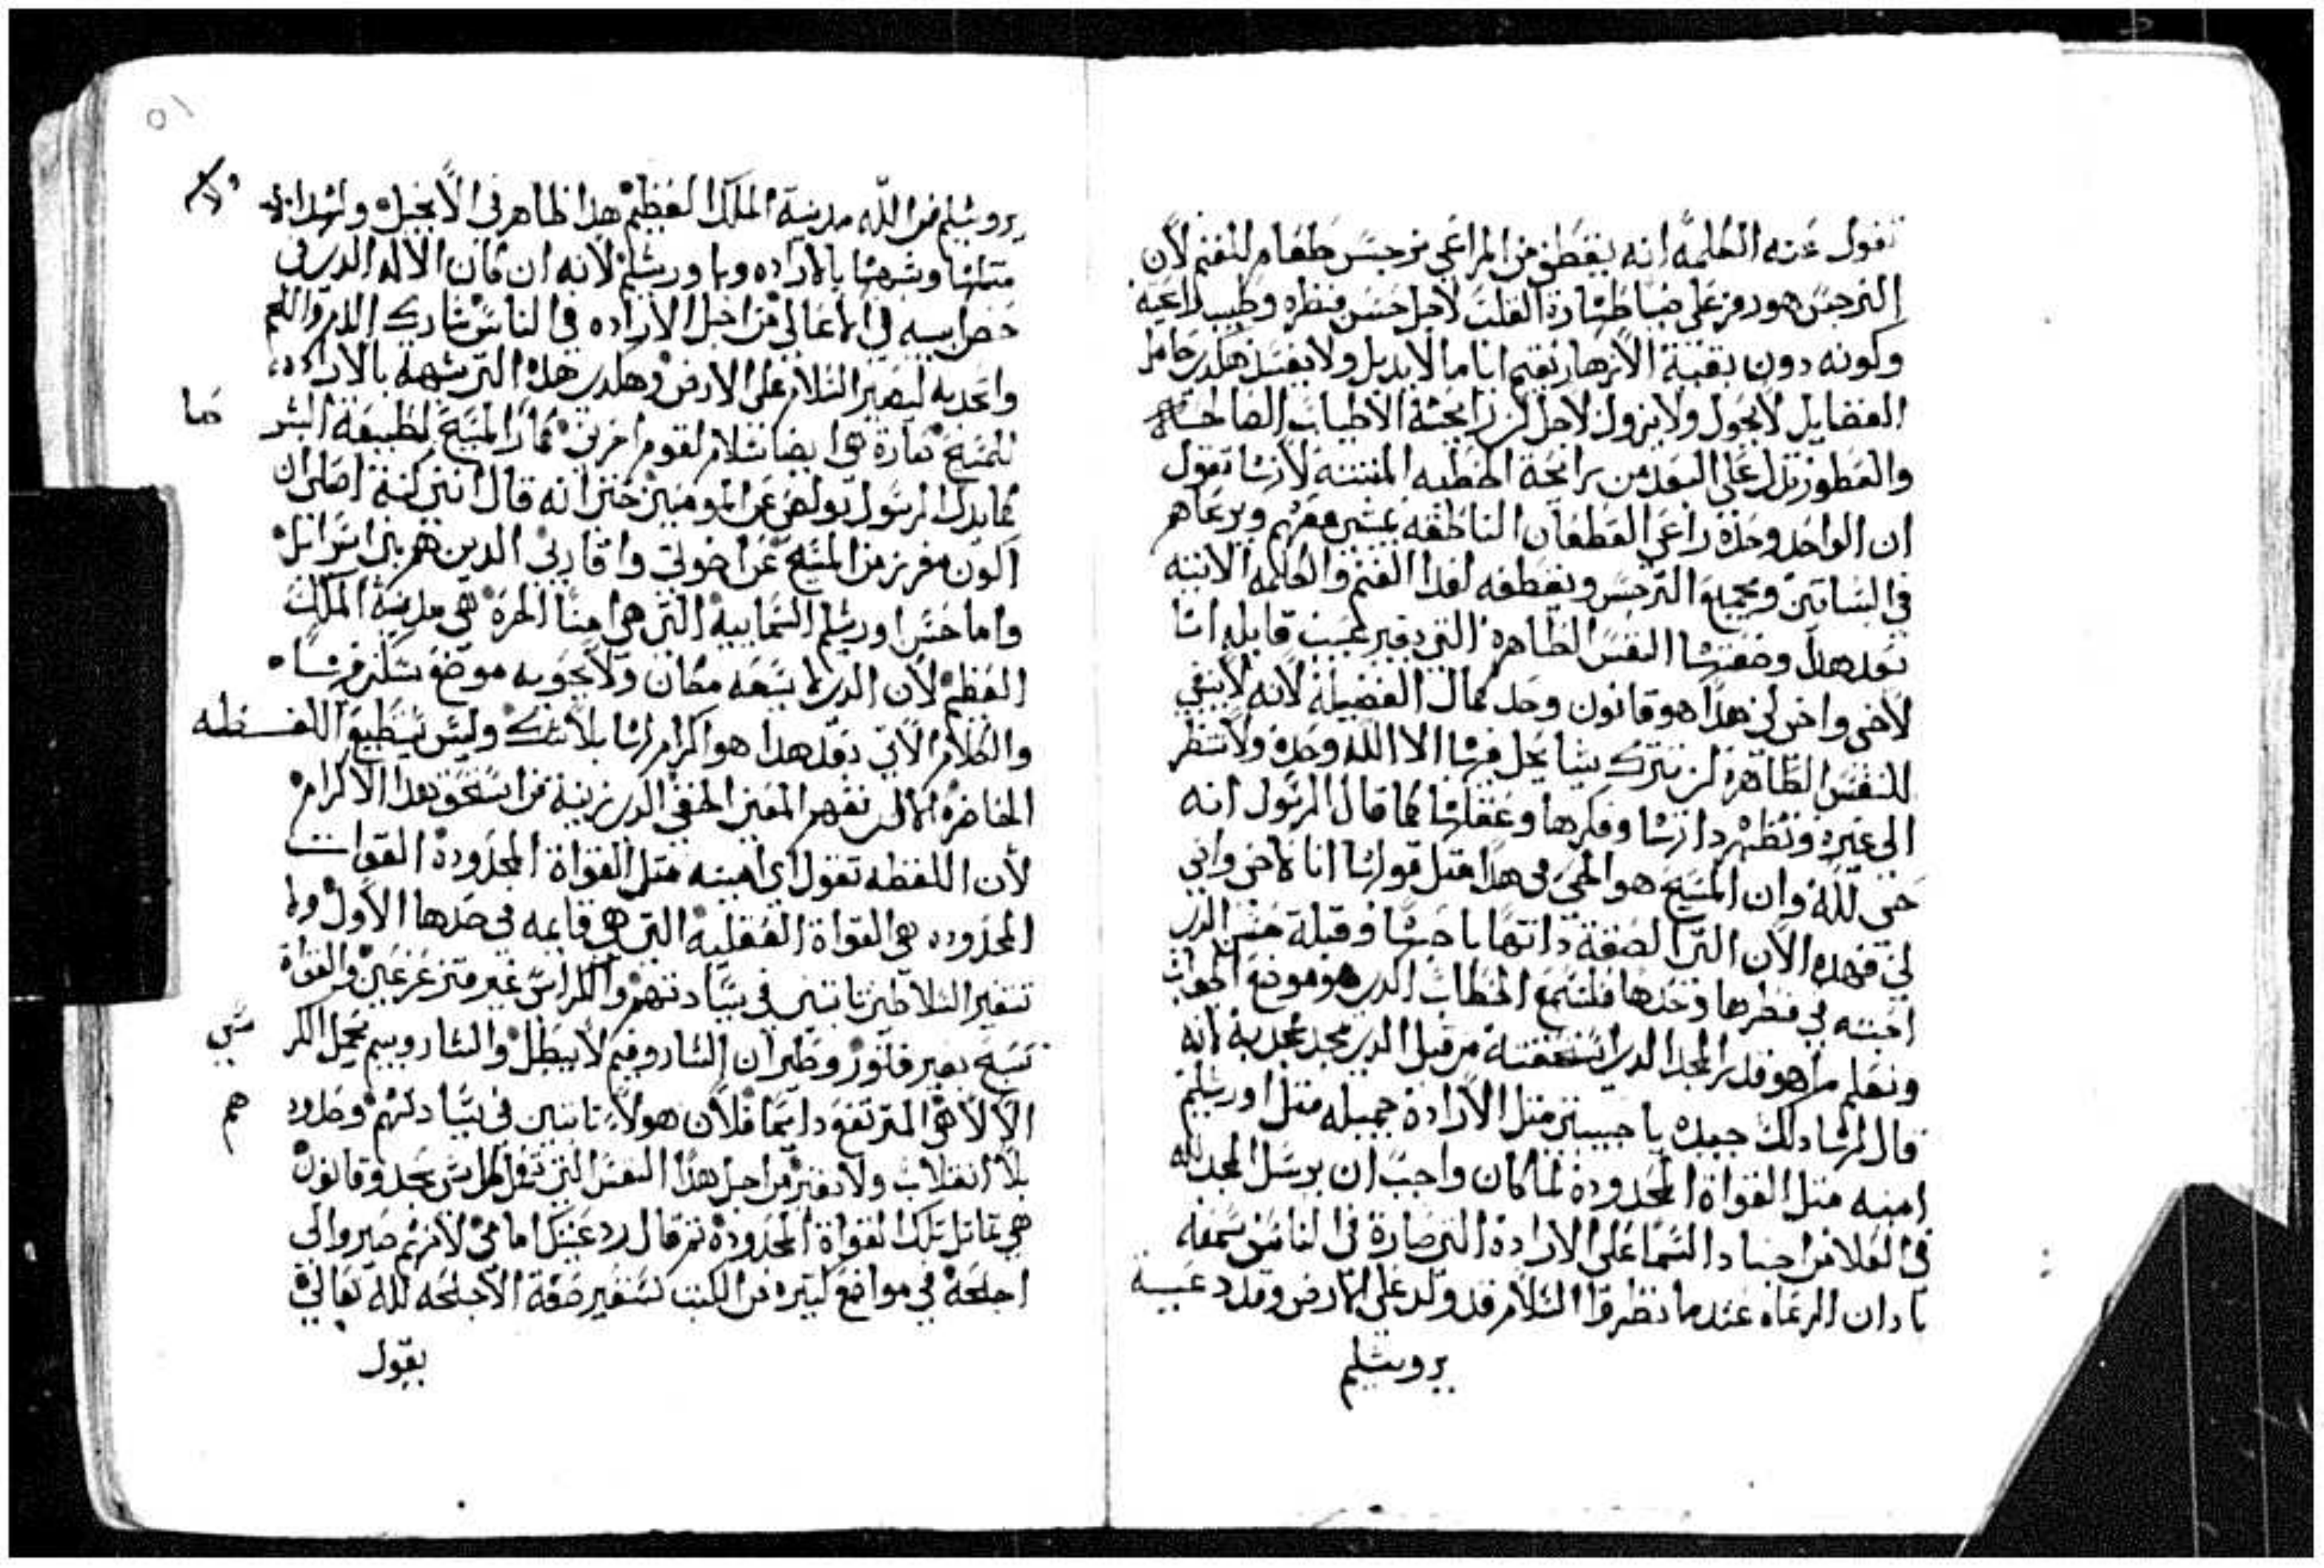 تقول عنه الكلمه انه يقطف من المراعي نرجس طعام للغنم لان
النرجس هو رمز على ضيا طهارة القلب لاجل حسن منظره وطيب راعيه
وكونه دون بقية الازهار يقيم اياما لا يدبل ولا يفسد هكدي حامل
الفضايل لا يحول ولا يزول لاجل رايحة الاطياب الصالحة
والعطور تدل على البعد من رايحة الخطيه المنتنه لانها تقول
ان الواحد وحده راعي القطعان الناطقه يمشي معهم ويرعاهم
في البساتين ويجمع النرجس ويقطفه لغدا الغنم والكلمه الاتيه
بعد هدا وضعتها النفس الطاهرة التي قايله انا
لاخي واخي لي هدا هو قانون وحد كمال الفضيلة لانه لا ينبغي
للنفس الطاهرة ان تترك شيا يحل فيها الا الله وحده ولا تنظر
الى غيره وتطهر داتها وفكرها وعقلها كما قال الرسول انه
حي لله وان المسيح هو الحي في هدا مثل قولها انا لاخي واخي
لي فهده الان التي الصقة داتها باحبها وقبلة حسن الدي
احبته في منظرها وحدها فلنسمع الخطاب الدي هو موضع الجواب
ونعلم ما هو قدر المجد الدي استحقته من قبل الدي يمجد ممجديه لانه
قال لها دلك جيده يا حبيبتي مثل الارادة جميله مثل اورشليم
امنيه مثل القواة المحدودة لما كان واجب ان يرسل المجد لله
في العلا من اجناد السما على الارادة التي صارة في الناس سمعه
بادان الرعاه عندما نظروا السلام قد ولد على الارض وقد دعية
يروشليم
يروشليم من الله مدينة الملك العظيم هدا ظاهر في الانجيل ولهدا
متلها وشبهها بالاراده وباورشليم لانه ان كان الاله الدي في
حضن ابيه في الاعالي من اجل الاراده في الناس شارك الدم واللحم
واتحد به ليصير السلام على الارض وهكدي هده التي شبهة بالاراده
للمسيح تعارة هي ايضا سلام لقوم اخرين كما المسيح لطبيعة البشر
كما يدل الرسول بولص عن المومنين حين انه قال انني كنة اصلي ان
اكون مفرز من المسيح عن اخوتي واقاربي الدين هم بني اسراييل
واما حسن اورشليم السماييه التي هي امنا الحرة هي مدينة الملك
العظيم لان الدي لا يسعه مكان ولا يحويه موضع سكن فيها
والكلام الاتي بعد هدا هو اكرام لها بلا شك وليس يستطيع اللفظه
الحاضرة الا ان تفهم المعني الخفي من استحق بهدا الاكرام
لان اللفظه تقول اي امينه مثل القواة المحدودة القوات
المحدوده هي القواة العقليه التي هي قايمه في حدها الاول ولا
تتغير السلاطين تابتين في سيادتهم والكراسي غير متزعزعين والقواة
تسبح بغير فتور وطيران الشاروفيم لا يبطل والشاروبيم تحمل الكرسي
الالاهي المرتفع دايما فلان هولاء تابتين في سيادتهم وحدودهم
بلا انقلاب ولا تغير من اجل هدا النفس التي تعمل كل شي بحد وقانون
هي تماتل تلك القواة المحدودة ثم قال رد عينيك امامي لانهم صيروا لي
اجنحة في مواضع كتيره من الكتب تستعير صفة الاجنحه لله تعالي
يقول